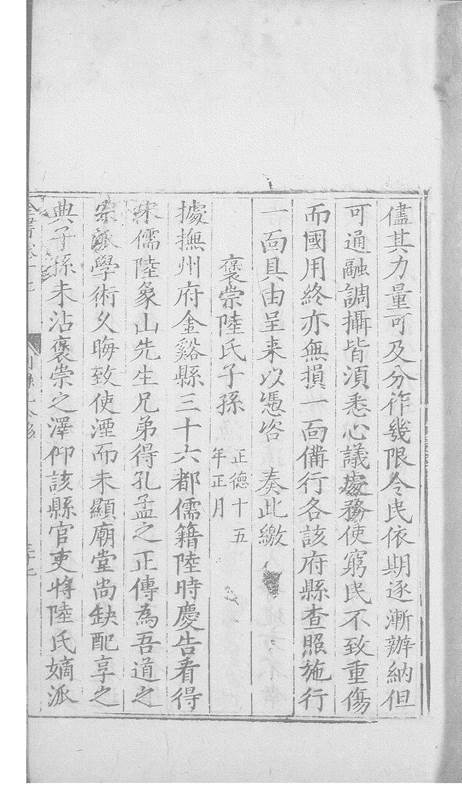 儘其力量可及分作幾限令民依期逐漸辦納但
可通融調攝皆須悉心議處務使窮民不致重傷
而國用終亦無損一面備行各該府縣查照施行
一面具由呈来以憑咨　奏此繳
褒崇陸氏子孫　正德十五年正月
據撫州府金谿縣三十六都儒籍陸時慶告看得
宋儒陸象山先生兄弟得孔孟之正傳為吾道之
宗派學術久晦致使湮而未顯廟堂尚缺配享之
典子孫未沾褒崇之澤仰該縣官吏將陸氏嫡派